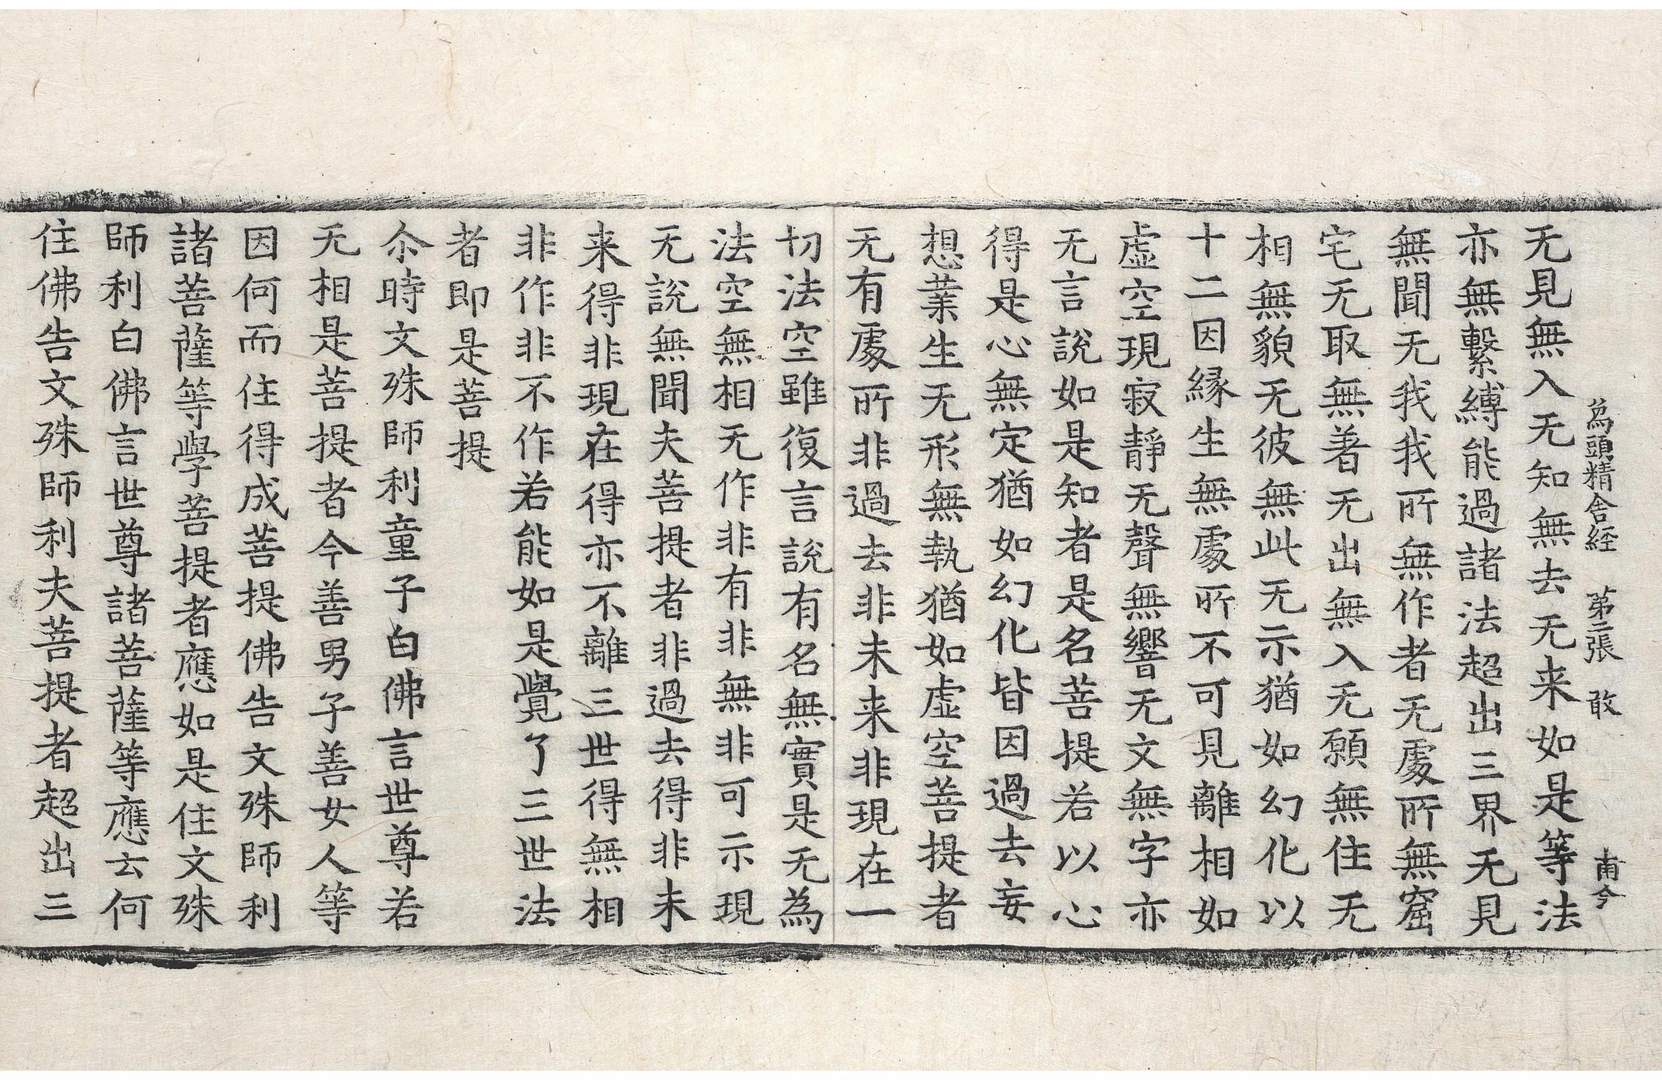 為頭精舎経 第二張 敢 甫今
无見無入无知無去无来如是等法
亦無繫縛能過諸法超出三界无見
無聞无我我所無作者无處所無窟
宅无取無著无出無入无願無住无
相無貌无彼無此无示猶如幻化以
十二因緣生無處所不可見離相如
虛空現寂靜无聲無響无文無字亦
无言說如是知者是名菩提若以心
得是心無定猶如幻化皆因過去妄
想業生无形無執猶如虛空菩提者
无有處所非過去非未来非現在一
切法空雖復言說有名無實是无為
法空無相无作非有非無非可示現
无說無聞夫菩提者非過去得非未
来得非現在得亦不離三世得無相
非作非不作若能如是覺了三世法
者即是菩提
尒時文殊師利童子白佛言世尊若
无相是菩提者今善男子善女人等
因何而住得成菩提佛告文殊師利
諸菩薩等學菩提者應如是住文殊
師利白佛言世尊諸菩薩等應云何
住佛告文殊師利夫菩提者超出三